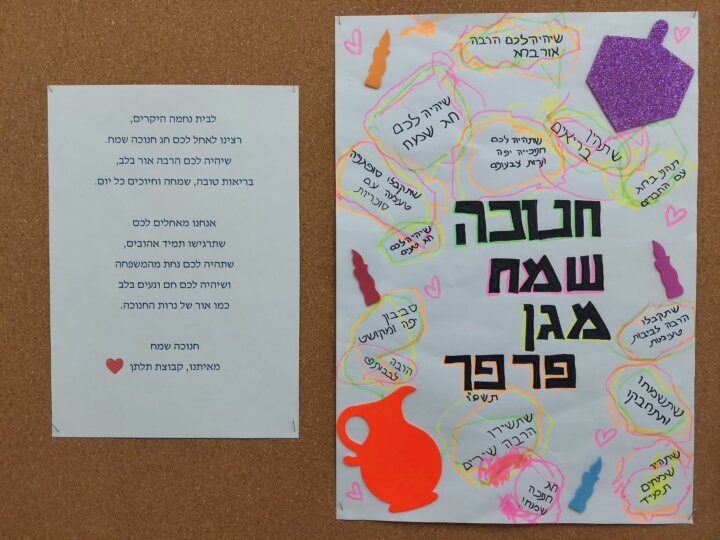 לבית נחמה היקרים,
רצינו לאחל לכם חג חנוכה שמח.
שיהיה לכם הרבה אור בלב,
בריאות טובה, שמחה וחיוכים כל יום.
אנחנו מאחלים לכם
שתרגישו תמיד אהובים,
שתהיה לכם נחת מהמשפחה
ושיהיה לכם חם ונעים בלב
כמו אור של נרות החנוכה.
חנוכה שמח
מאיתנו, קבוצת תלתן
שיהיה לכם הרבה
שיהיה לכם
חג שמח
שתהיה לכם
חנוכייה יפה
ונרות צבעוניים
שתהיו
בריאים
תהנו בחג
עם החברים
שתקבלו סופגנייה
טעימה עם
סוכריות
שיהיה לכם
חג טעים
חנוכה
שמח
מגן
פרפר
תשפ"ו
סביבון
יפה ומקושט
הרבה
לבבות
שתקבלו
הרבה לביבות
טעימות
שתשמחו
ותתחבקו
שתשירו
הרבה שירים
שתהיו
שמחים
תמיד
חג
חנוכה
שמח!